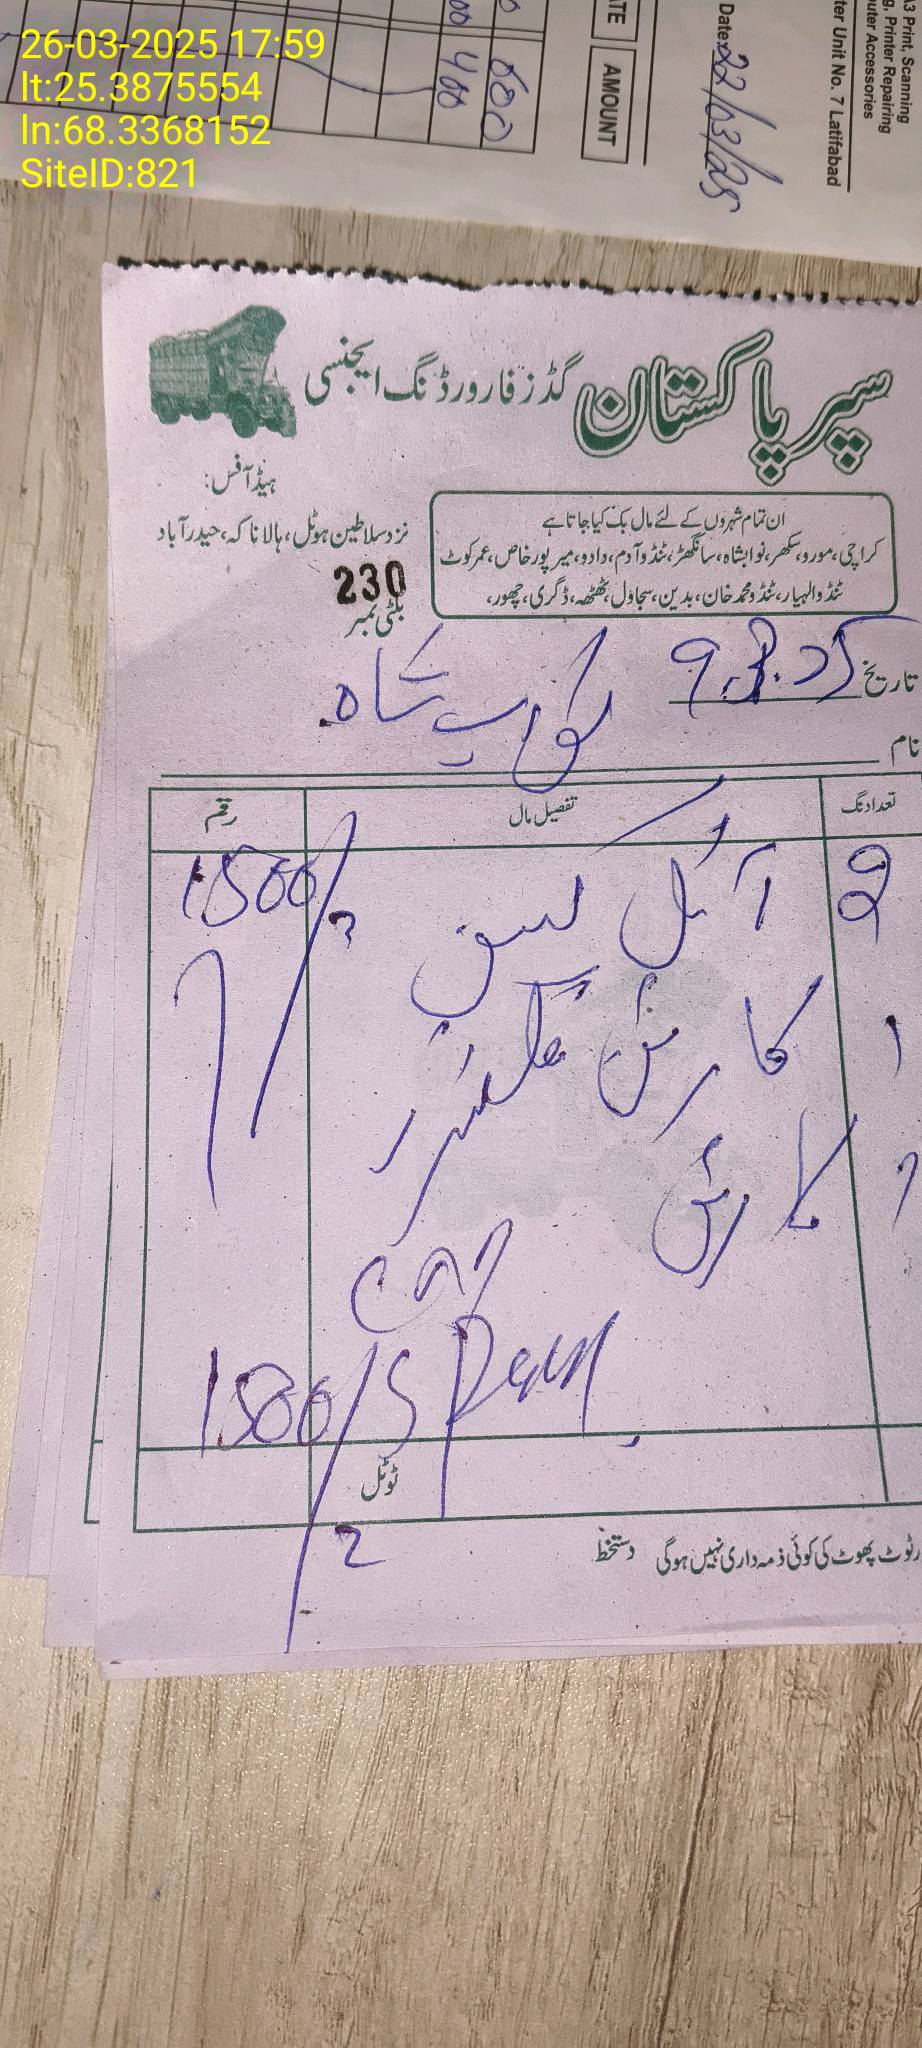 26-03-2025 17:59
lt:25.3875554
ln:68.3368152
SiteID:821
A3 Print, Scanning
g, Printer Repairing
uter Accessories
ter Unit No. 7 Latifabad
Date: 22/03/25
AMOUNT
600
400
سپر پاکستان گڈز فارورڈنگ ایجنسی
ہیڈ آفس:
نزد سلاطین ہوٹل، ہالا ناکہ، حیدرآباد
ان تمام شہروں کے لئے مال بک کیا جاتا ہے
کراچی، مورو، سکھر، نوابشاہ، سانگھڑ، ٹنڈو آدم، دادو، میرپور خاص، عمر کوٹ
ٹنڈوالہیار، ٹنڈو محمد خان، بدین، سجاول، ٹھٹھہ، ڈگری، چھور،
230
بلٹی نمبر
تاریخ
نام
تعداد نگ تفصیل مال رقم
2 آئل کین 1500/
1 کارٹن
1 کارٹن
1500/
ٹوٹل
ٹوٹ پھوٹ کی کوئی ذمہ داری نہیں ہوگی دستخط